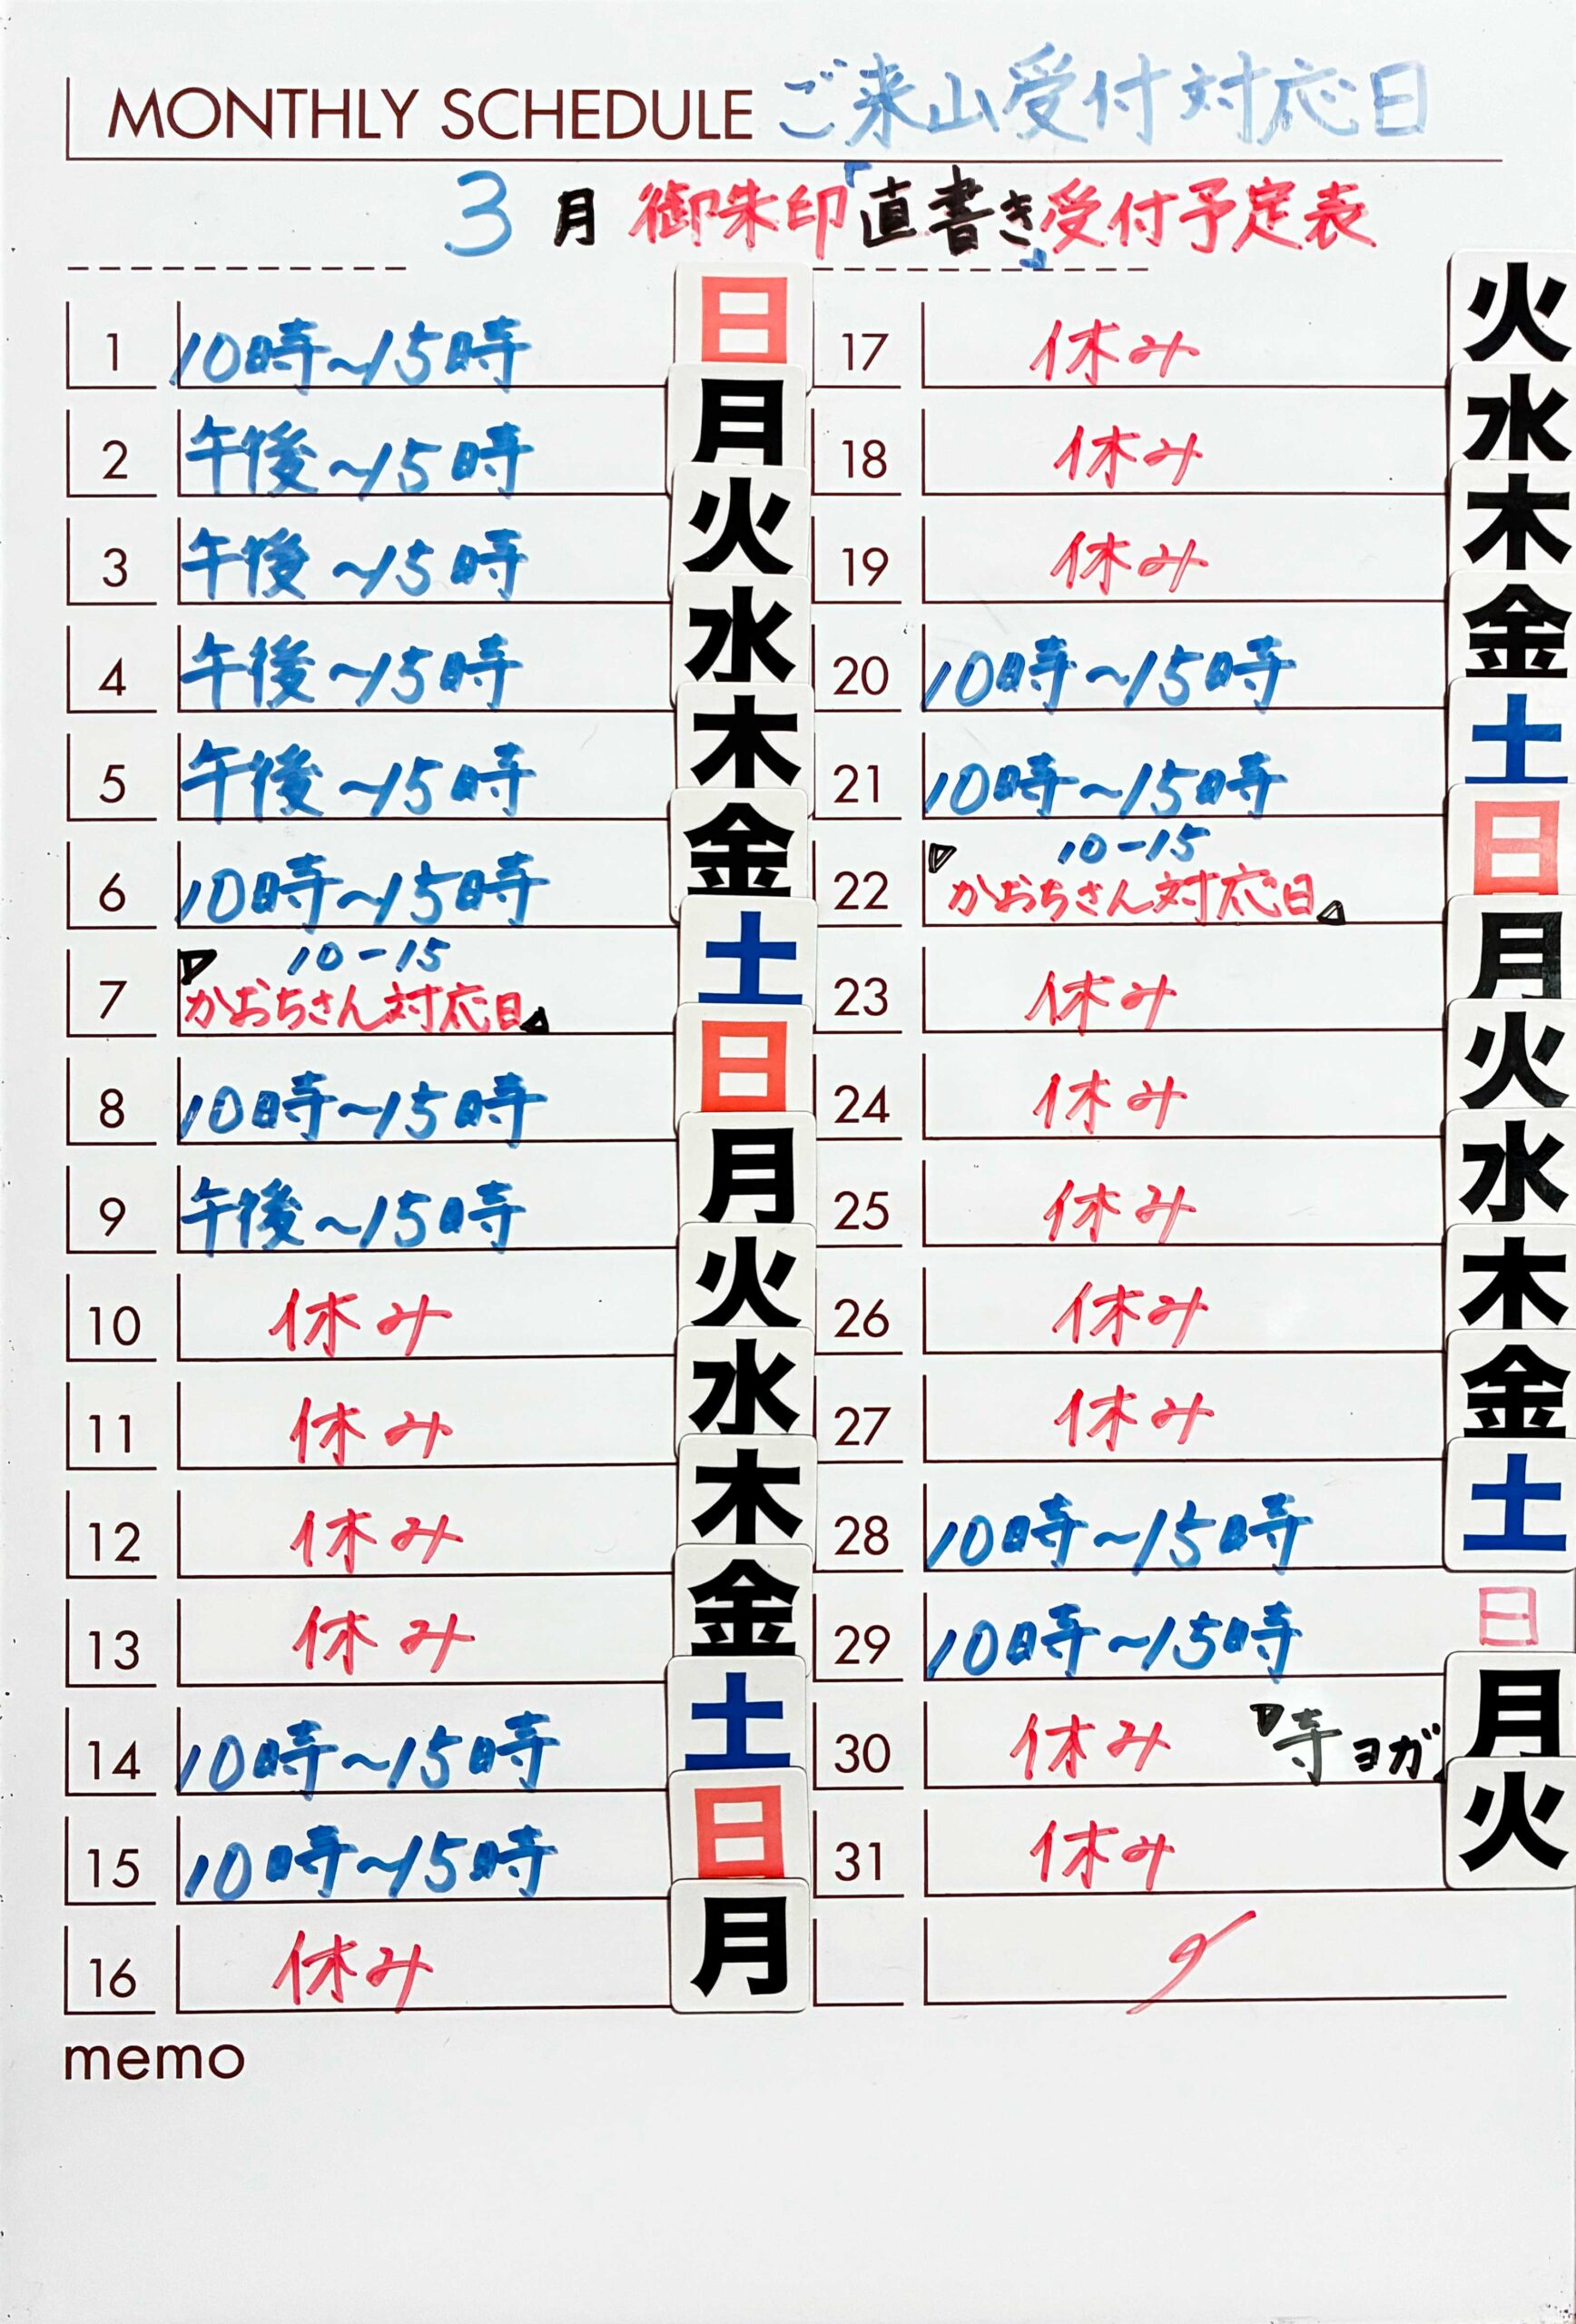 MONTHLY SCHEDULE ご来山受付対応日
3月 御朱印「直書き」受付予定表
1 10時~15時 日
2 午後~15時 月
3 午後~15時 火
4 午後~15時 水
5 午後~15時 木
6 10時~15時 金
7 10-15 土
「かおちさん対応日」
8 10時~15時 日
9 午後~15時 月
10 休み 火
11 休み 水
12 休み 木
13 休み 金
14 10時~15時 土
15 10時~15時 日
16 休み 月
17 休み 火
18 休み 水
19 休み 木
20 10時~15時 金
21 10時~15時 土
22 10-15 日
「かおちさん対応日」
23 休み 月
24 休み 火
25 休み 水
26 休み 木
27 休み 金
28 10時~15時 土
29 10時~15時 日
30 休み 「寺ヨガ」 月
31 休み 火
memo